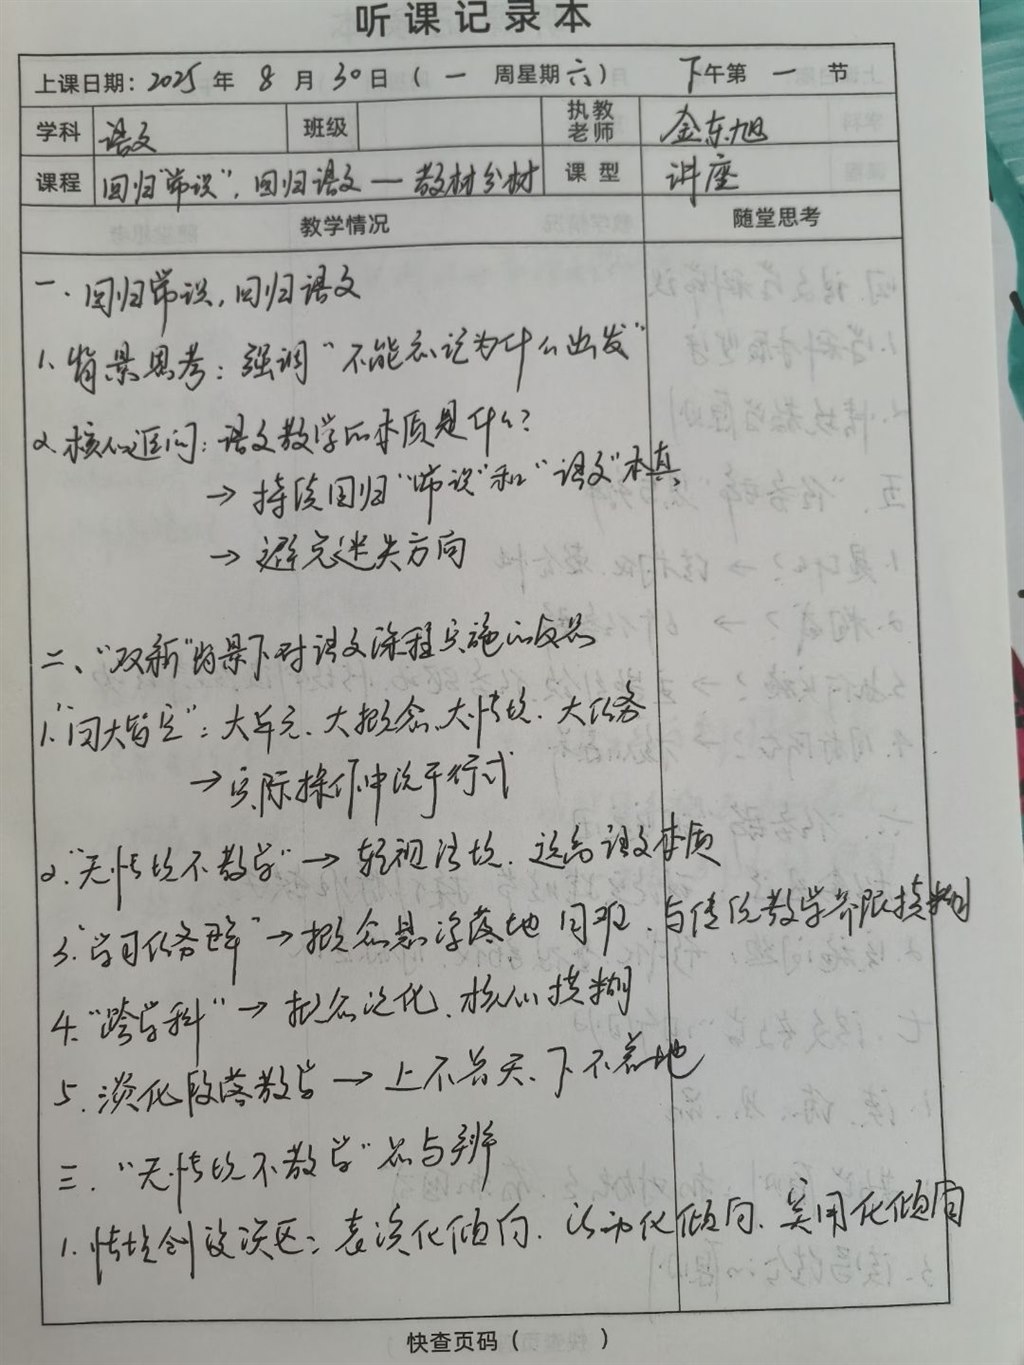 听课记录本
上课日期：2025年8月30日（一周星期六）下午第一节
学科 语文 班级 执教老师 金东旭
课程 回归“常识”，回归语文—教材分材 课型 讲座
教学情况 随堂思考
一．回归常识，回归语文
1．背景思考：强调“不能忘记为什么出发”
2．核心追问：语文教学的本质是什么？
→持续回归“常识”和“语文”本真，
→避免迷失方向
二、“双新”背景下对语文课程实施的反思
1．“四大皆空”：大单元、大概念、大情境、大任务
→实际操作中流于形式
2．“无情境不教学”→轻视语境、远离语文本质
3．“学习任务群”→概念悬浮落地困难、与传统教学界限模糊
4．“跨学科”→概念泛化、核心模糊
5．淡化段落教学→上不着天、下不着地
三．“无情境不教学”思与辨
1．情境创设误区：表演化倾向、活动化倾向、实用化倾向
快查页码（ ）